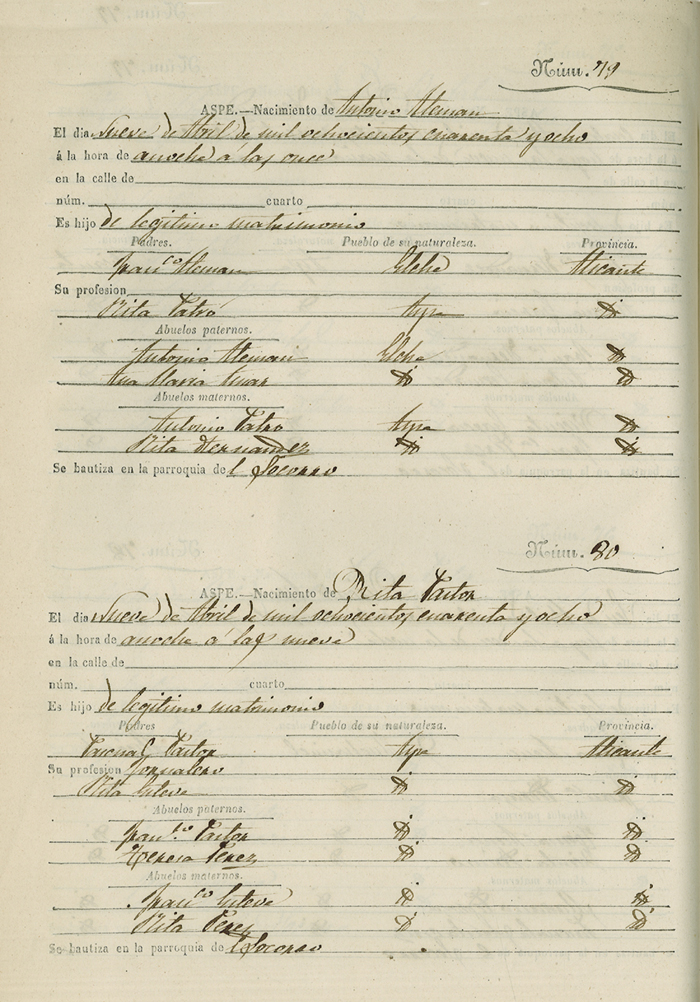 Núm. 79
ASPE.—Nacimiento de Antonio Aleman
El dia Nueve de Abril de mil ochocientos cuarenta y ocho
á la hora de anoche á las once
en la calle de
núm. cuarto
Es hijo de legitimo matrimonio
Padres. Pueblo de su naturaleza. Provincia.
Franco Aleman Elche Alicante
Su profesion
Rita Aspe D
Abuelos paternos.
Antonio Aleman Elche D
Ana Maria D D
Abuelos maternos.
Antonio Aspe D
Rita Hernandez D D
Se bautiza en la parroquia de l Socorro
Núm. 80
ASPE.—Nacimiento de Rita Pastor
El dia Nueve de Abril de mil ochocientos cuarenta y ocho
á la hora de anoche á las nueve
en la calle de
núm. cuarto
Es hijo de legitimo matrimonio
Padres Pueblo de su naturaleza. Provincia.
Pascual Pastor Aspe Alicante
Su profesion Jornalero
Rita Esteve D D
Abuelos paternos.
Franco Pastor D D
Teresa Perez D D
Abuelos maternos.
Franco Esteve D D
Rita Perez D D
Se bautiza en la parroquia de l Socorro